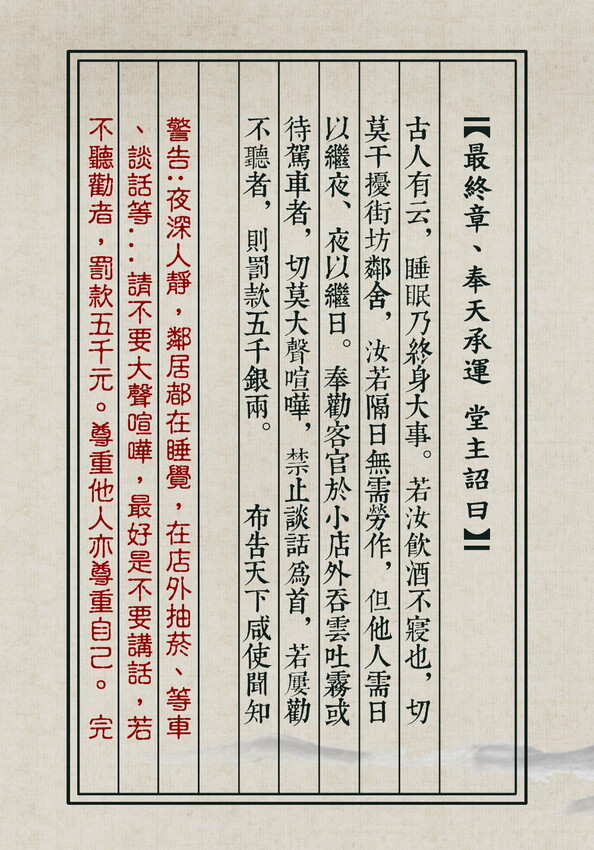 【最終章、奉天承運 堂主詔曰】
古人有云，睡眠乃終身大事。若汝飲酒不寢也，切
莫干擾街坊鄰舍，汝若隔日無需勞作，但他人需日
以繼夜、夜以繼日。奉勸客官於小店外吞雲吐霧或
待駕車者，切莫大聲喧嘩，禁止談話為首，若屢勸
不聽者，則罰款五千銀兩。 布告天下咸使聞知
警告:夜深人靜，鄰居都在睡覺，在店外抽菸、等車
、談話等...請不要大聲喧嘩，最好是不要講話，若
不聽勸者，罰款五千元。尊重他人亦尊重自己。 完